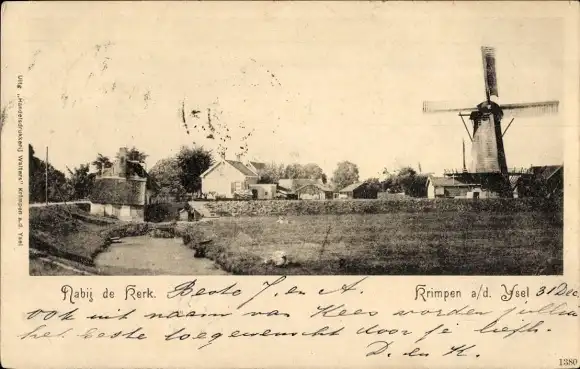 Uitg. „Handelsdrukkerij Wolters" Krimpen a.d. Ysel.
Nabij de Kerk.
Krimpen a/d. Ysel
Besto J. en A. 31 Dec.
ook uit naam van Kees worden jullie
het beste toegewenscht door je liefh.
D. en K.
1380